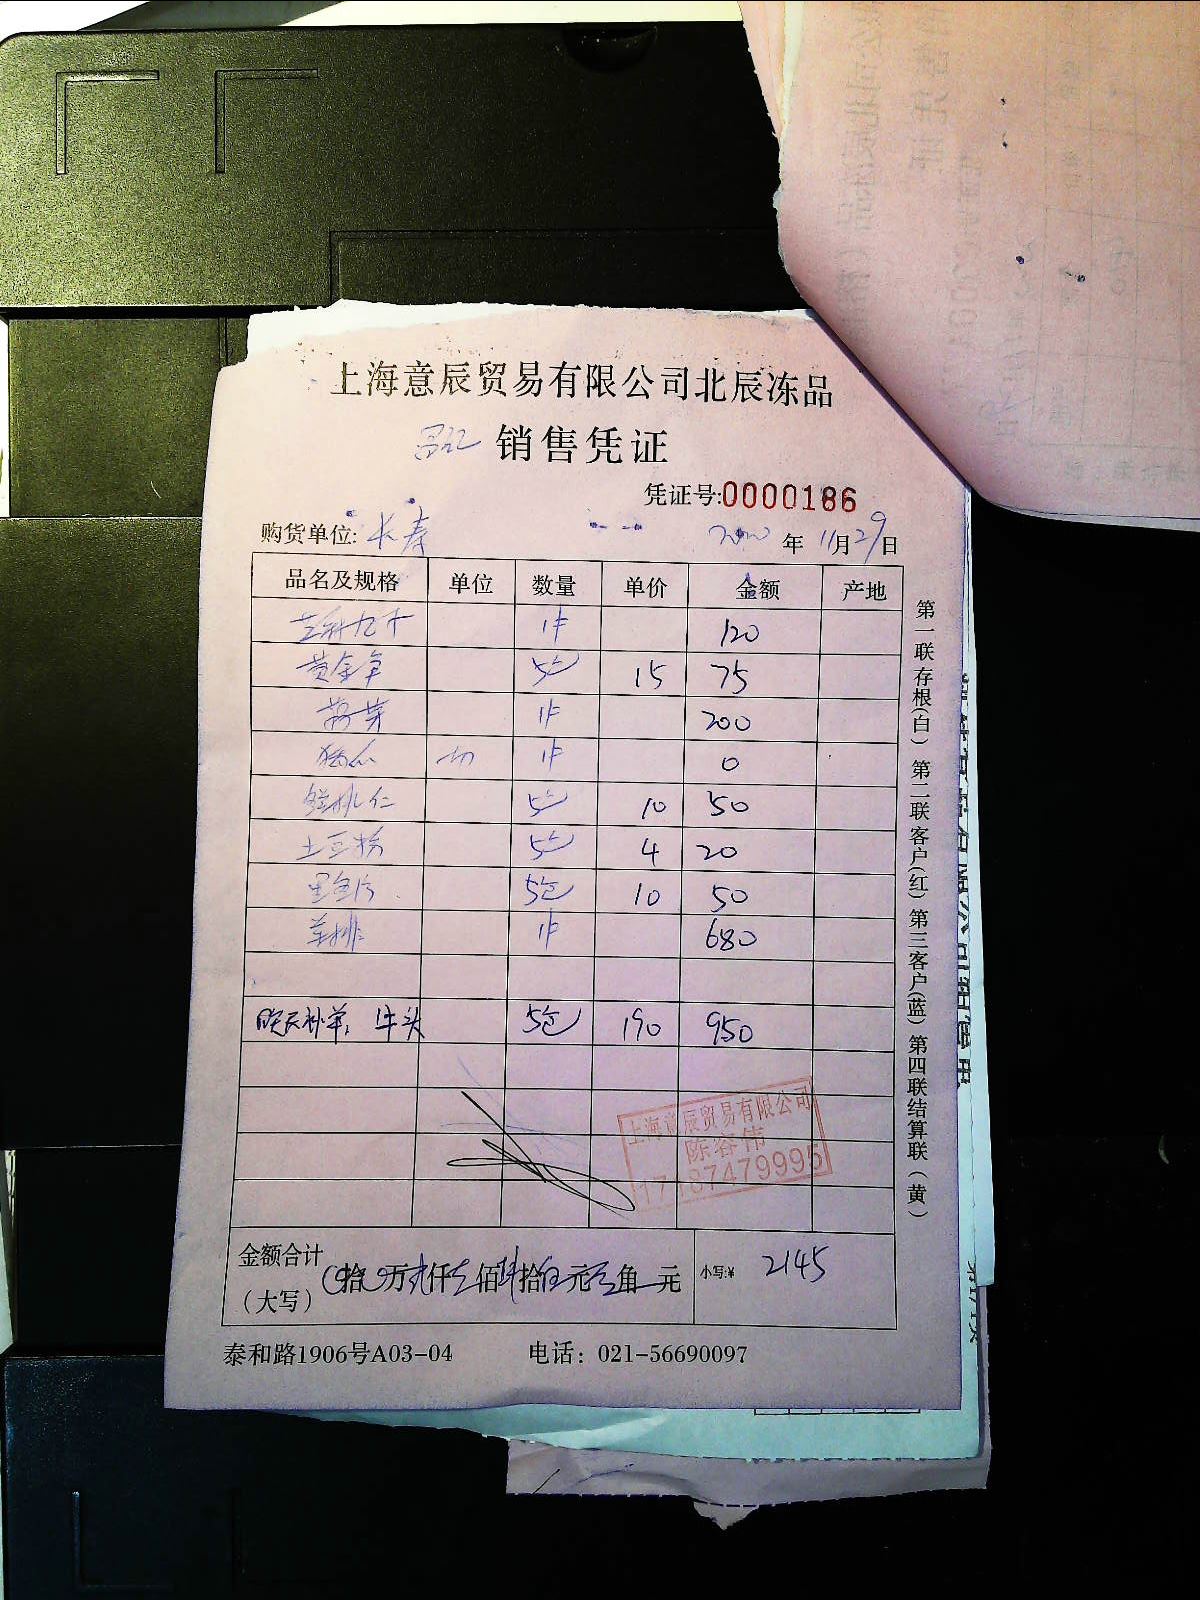 上海意辰贸易有限公司北辰冻品
销售凭证
凭证号:0000186
购货单位: 长寿 2020 年 11月29日
品名及规格 单位 数量 单价 金额 产地
1件 120
黄金 5包 15 75
1件 200
1件 0
鲜桃仁 5包 10 50
土豆粉 5包 4 20
5包 10 50
羊排 1件 680
昨天补单, 牛头 5包 190 950
上海意辰贸易有限公司
陈容伟
17187479995
金额合计
(大写) 拾 万 仟 佰 拾 元 角 元 小写:¥ 2145
泰和路1906号A03-04 电话: 021-56690097
第一联存根(白) 第二联客户(红) 第三客户(蓝) 第四联结算联(黄)